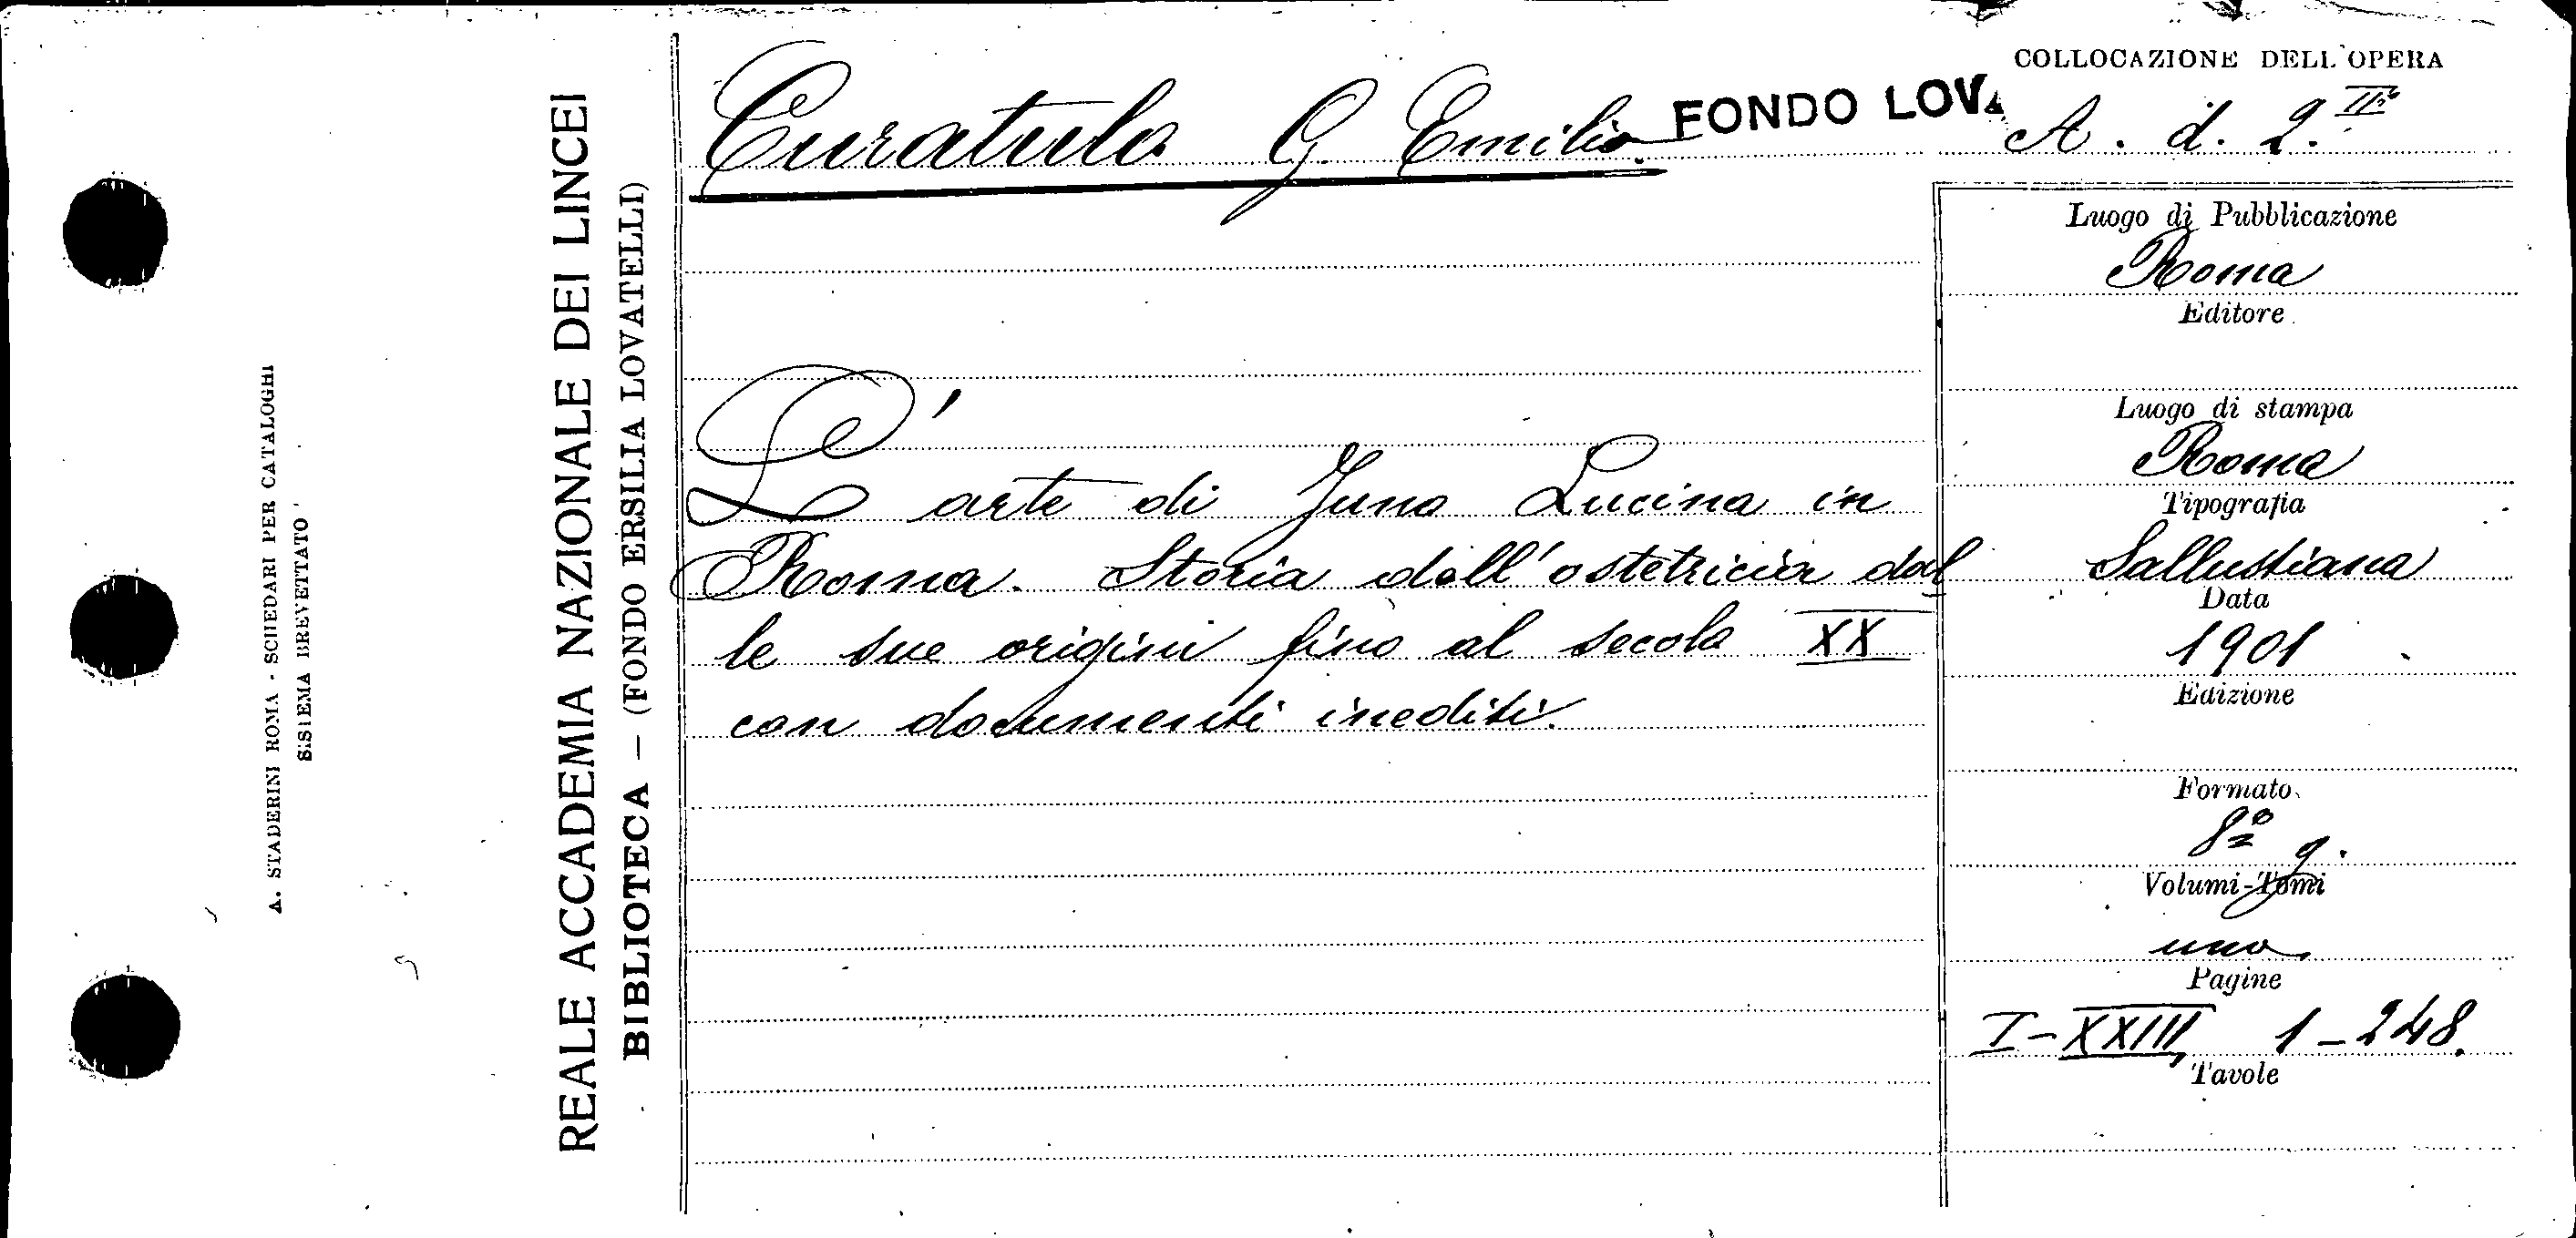 A. STADERINI ROMA - SCHEDARI PER CATALOGHI
SISTEMA BREVETTATO
REALE ACCADEMIA NAZIONALE DEI LINCEI
BIBLIOTECA — (FONDO ERSILIA LOVATELLI)
Curatulo G. Emilio.
FONDO LOVA
L'arte di Juno Lucina in
Roma. Storia dell'ostetricia dal
le sue origini fino al secolo XX
con documenti inediti.
COLLOCAZIONE DELL'OPERA
A. d. 2.
Luogo di Pubblicazione
Roma
Editore
Luogo di stampa
Roma
Tipografia
Sallustiana
Data
1901
Edizione
Formato
8º g.
Volumi-Tomi
uno
Pagine
I-XXIII, 1-248.
Tavole